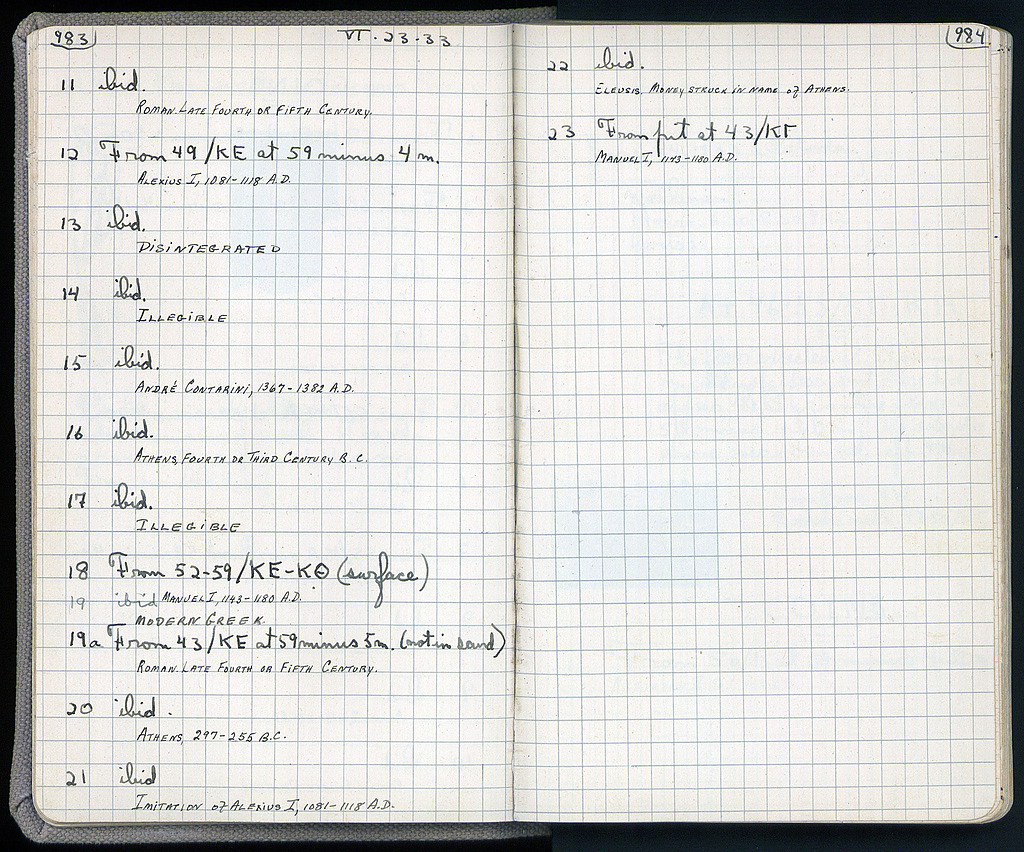 983
VI-23-33
11 ibid.
ROMAN. LATE FOURTH OR FIFTH CENTURY.
12 From 49/KE at 59 minus 4 m.
ALEXIUS I, 1081-1118 A.D.
13 ibid.
DISINTEGRATED
14 ibid.
ILLEGIBLE
15 ibid.
ANDRÉ CONTARINI, 1367-1382 A.D.
16 ibid.
ATHENS, FOURTH OR THIRD CENTURY B.C.
17 ibid.
ILLEGIBLE
18 From 52-59/KE-KΘ (surface)
MANUEL I, 1143-1180 A.D.
19 ibid
MODERN GREEK.
19a From 43/KE at 59 minus 5m. (not in sand)
ROMAN. LATE FOURTH OR FIFTH CENTURY.
20 ibid.
ATHENS, 297-255 B.C.
21 ibid
IMITATION of ALEXIUS I, 1081-1118 A.D.
984
22 ibid.
ELEUSIS. MONEY STRUCK IN NAME of ATHENS.
23 From pit at 43/KΓ
MANUEL I, 1143-1180 A.D.